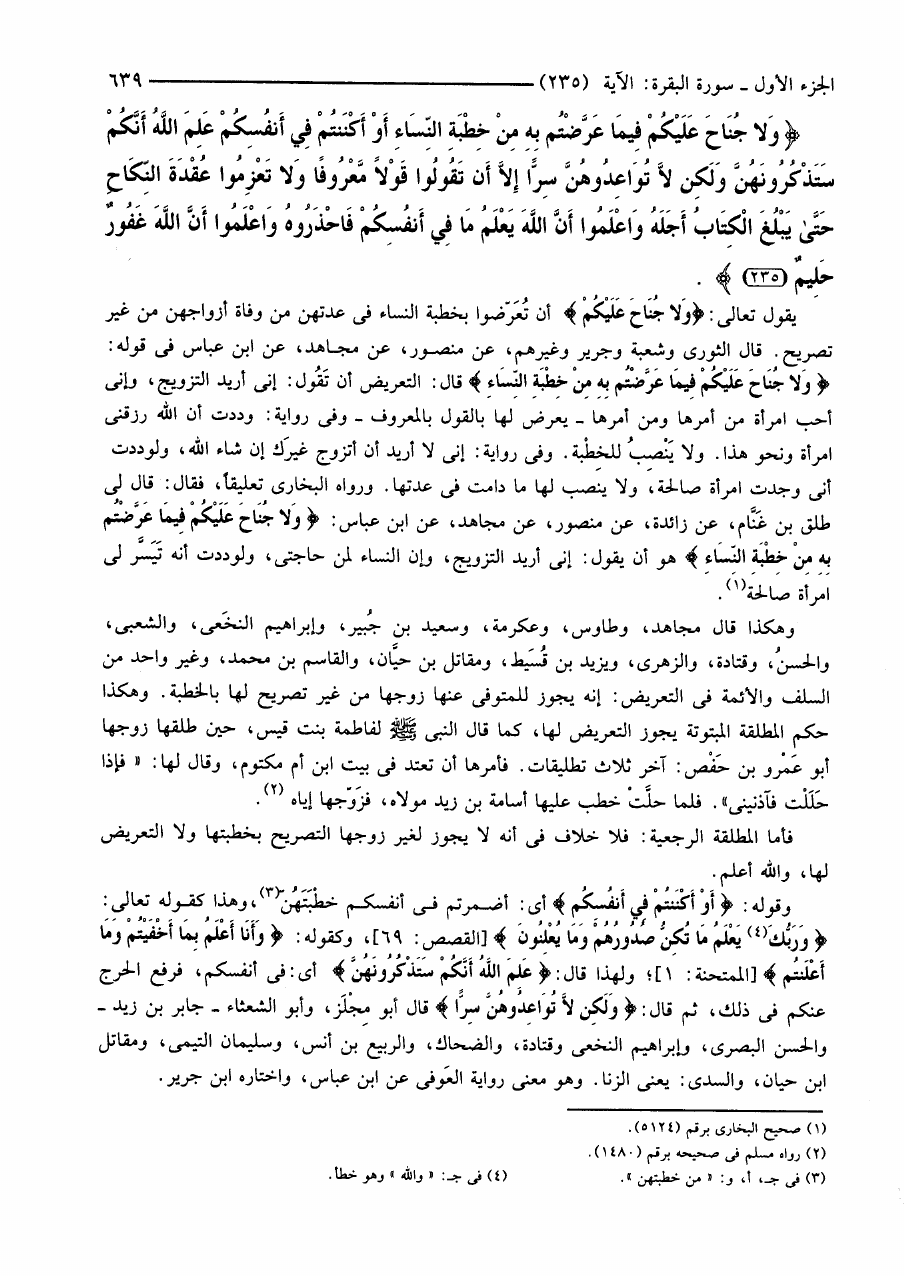 الجزء الأول ـ سورة البقرة: الآية (٢٣٥) ــــــــــــــــــــ ٦٣٩
﴿ وَلا جُنَاحَ عَلَيْكُمْ فِيمَا عَرَّضْتُم بِهِ مِنْ خِطْبَةِ النِّسَاءِ أَوْ أَكْنَنتُمْ فِي أَنفُسِكُمْ عَلِمَ اللَّهُ أَنَّكُمْ
سَتَذْكُرُونَهُنَّ وَلَكِن لاَّ تُوَاعِدُوهُنَّ سِرًّا إِلاَّ أَن تَقُولُوا قَوْلاً مَّعْرُوفًا وَلا تَعْزِمُوا عُقْدَةَ النِّكَاحِ
حَتَّىٰ يَبْلُغَ الْكِتَابُ أَجَلَهُ وَاعْلَمُوا أَنَّ اللَّهَ يَعْلَمُ مَا فِي أَنفُسِكُمْ فَاحْذَرُوهُ وَاعْلَمُوا أَنَّ اللَّهَ غَفُورٌ
حَلِيمٌ (٢٣٥) ﴾ .
يقول تعالى: ﴿وَلا جُنَاحَ عَلَيْكُمْ ﴾ أن تُعَرّضوا بخطبة النساء فى عدتهن من وفاة أزواجهن من غير
تصريح. قال الثورى وشعبة وجرير وغيرهم، عن منصور، عن مجاهد، عن ابن عباس فى قوله:
﴿ وَلا جُنَاحَ عَلَيْكُمْ فِيمَا عَرَّضْتُم بِهِ مِنْ خِطْبَةِ النِّسَاءِ ﴾ قال: التعريض أن تَقُول: إنى أريد التزويج، وإنى
أحب امرأة من أمرها ومن أمرها ـ يعرض لها بالقول بالمعروف ـ وفى رواية: وددت أن الله رزقنى
امرأة ونحو هذا. ولا يَنْصِبُ للخطْبة. وفى رواية: إنى لا أريد أن أتزوج غيرَك إن شاء الله، ولوددت
أنى وجدت امرأة صالحة، ولا ينصب لها ما دامت فى عدتها. ورواه البخارى تعليقاً، فقال: قال لى
طلق بن غَنَّام، عن زائدة، عن منصور، عن مجاهد، عن ابن عباس: ﴿ وَلا جُنَاحَ عَلَيْكُمْ فِيمَا عَرَّضْتُم
بِهِ مِنْ خِطْبَةِ النِّسَاءِ ﴾ هو أن يقول: إنى أريد التزويج، وإن النساء لمن حاجتى، ولوددت أنه تَيَسَّر لى
امرأة صالحة(١).
وهكذا قال مجاهد، وطاوس، وعكرمة، وسعيد بن جُبير، وإبراهيم النخَعى، والشعبى،
والحسنُ، وقتادة، والزهرى، ويزيد بن قُسَيط، ومقاتل بن حيَّان، والقاسم بن محمد، وغير واحد من
السلف والأئمة فى التعريض: إنه يجوز للمتوفى عنها زوجها من غير تصريح لها بالخطبة. وهكذا
حكم المطلقة المبتوتة يجوز التعريض لها، كما قال النبى ﷺ لفاطمة بنت قيس، حين طلقها زوجها
أبو عَمْرو بن حَفْص: آخر ثلاث تطليقات. فأمرها أن تعتد فى بيت ابن أم مكتوم، وقال لها: « فإذا
حَلَلْت فآذنينى». فلما حلَّتْ خطب عليها أسامة بن زيد مولاه، فزَوّجها إياه (٢).
فأما المطلقة الرجعية: فلا خلاف فى أنه لا يجوز لغير زوجها التصريح بخطبتها ولا التعريض
لها، والله أعلم.
وقوله: ﴿ أَوْ أَكْنَنتُمْ فِي أَنفُسِكُم ﴾ أى: أضمرتم فى أنفسكم خطْبَتَهُنّ(٣)، وهذا كقوله تعالى:
﴿ وَرَبُّكَ(٤) يَعْلَمُ مَا تُكِنُّ صُدُورُهُمْ وَمَا يُعْلِنُونَ ﴾ [القصص: ٦٩]، وكقوله: ﴿ وَأَنَا أَعْلَمُ بِمَا أَخْفَيْتُمْ وَمَا
أَعْلَنتُم ﴾ [الممتحنة: ١]؛ ولهذا قال:﴿ عَلِمَ اللَّهُ أَنَّكُمْ سَتَذْكُرُونَهُنَّ ﴾ أى:فى أنفسكم، فرفع الحرج
عنكم فى ذلك، ثم قال:﴿ وَلَكِن لاَّ تُوَاعِدُوهُنَّ سِرًّا ﴾ قال أبو مِجْلَز، وأبو الشعثاء ـ جابر بن زيد ـ
والحسن البصرى، وإبراهيم النخعى وقتادة، والضحاك، والربيع بن أنس، وسليمان التيمى، ومقاتل
ابن حيان، والسدى: يعنى الزنا. وهو معنى رواية العَوفى عن ابن عباس، واختاره ابن جرير.
(١) صحيح البخارى برقم (٥١٢٤).
(٢) رواه مسلم فى صحيحه برقم (١٤٨٠).
(٣) فى جـ، أ، و: « من خطبتهن ». (٤) فى جـ: « والله » وهو خطأ.